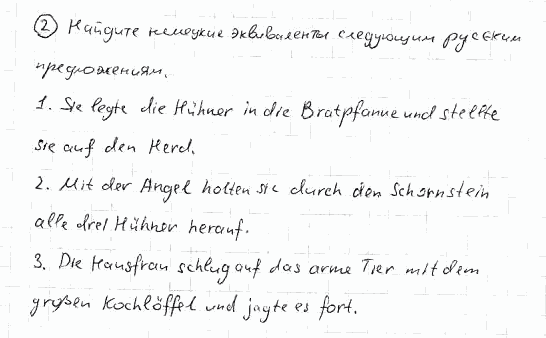 ② Найдите немецкие эквиваленты следующим русским
предложениям.
1. Sie legte die Hühner in die Bratpfanne und stellte
sie auf den Herd.
2. Mit der Angel holten sie durch den Schornstein
alle drei Hühner herauf.
3. Die Hausfrau schlug auf das arme Tier mit dem
großen Kochlöffel und jagte es fort.